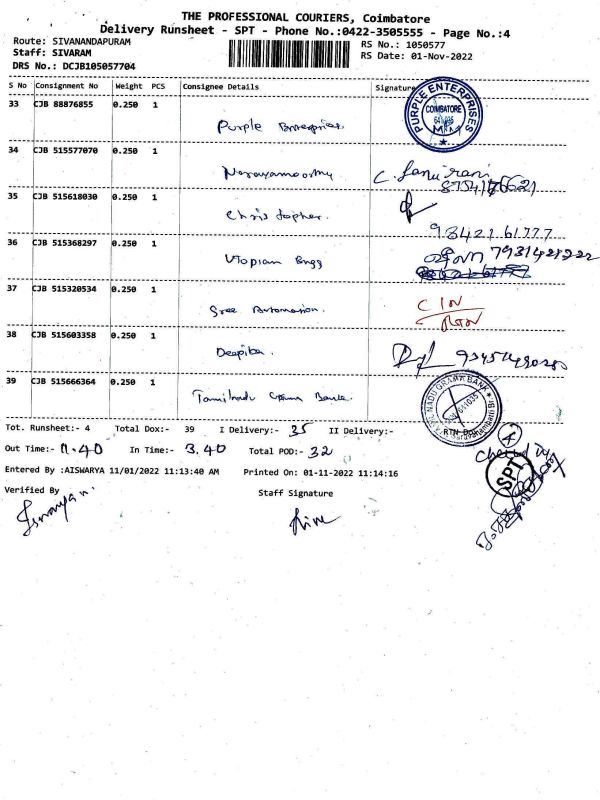 THE PROFESSIONAL COURIERS, Coimbatore
Delivery Runsheet - SPT - Phone No.:0422-3505555 - Page No.:4
Route: SIVANANDAPURAM
RS No.: 1050577
Staff: SIVARAM
RS Date: 01-Nov-2022
DRS No.: DCJB105057704
S No Consignment No Weight PCS Consignee Details Signature
33 CJB 88876855 0.250 1
Purple Enterprises
PURPLE ENTERPRISES
COIMBATORE
34 CJB 515577070 0.250 1
Narayamoorthy
35 CJB 515618030 0.250 1
Christopher.
98421 61777
36 CJB 515368297 0.250 1
Utopiam Engg
7931421222
37 CJB 515320534 0.250 1
Sree Automation.
C IN
RTN
38 CJB 515603358 0.250 1
Deepika.
39 CJB 515666364 0.250 1
Tamilnadu Grama Bank.
NADU GRAMA BANK
Tot. Runsheet:- 4 Total Dox:- 39 I Delivery:- 35 II Delivery:- RTN Dox:- 4
Out Time:- 11.40 In Time:- 3.40 Total POD:- 32
SPT
Entered By :AISWARYA 11/01/2022 11:13:40 AM Printed On: 01-11-2022 11:14:16
Verified By Staff Signature